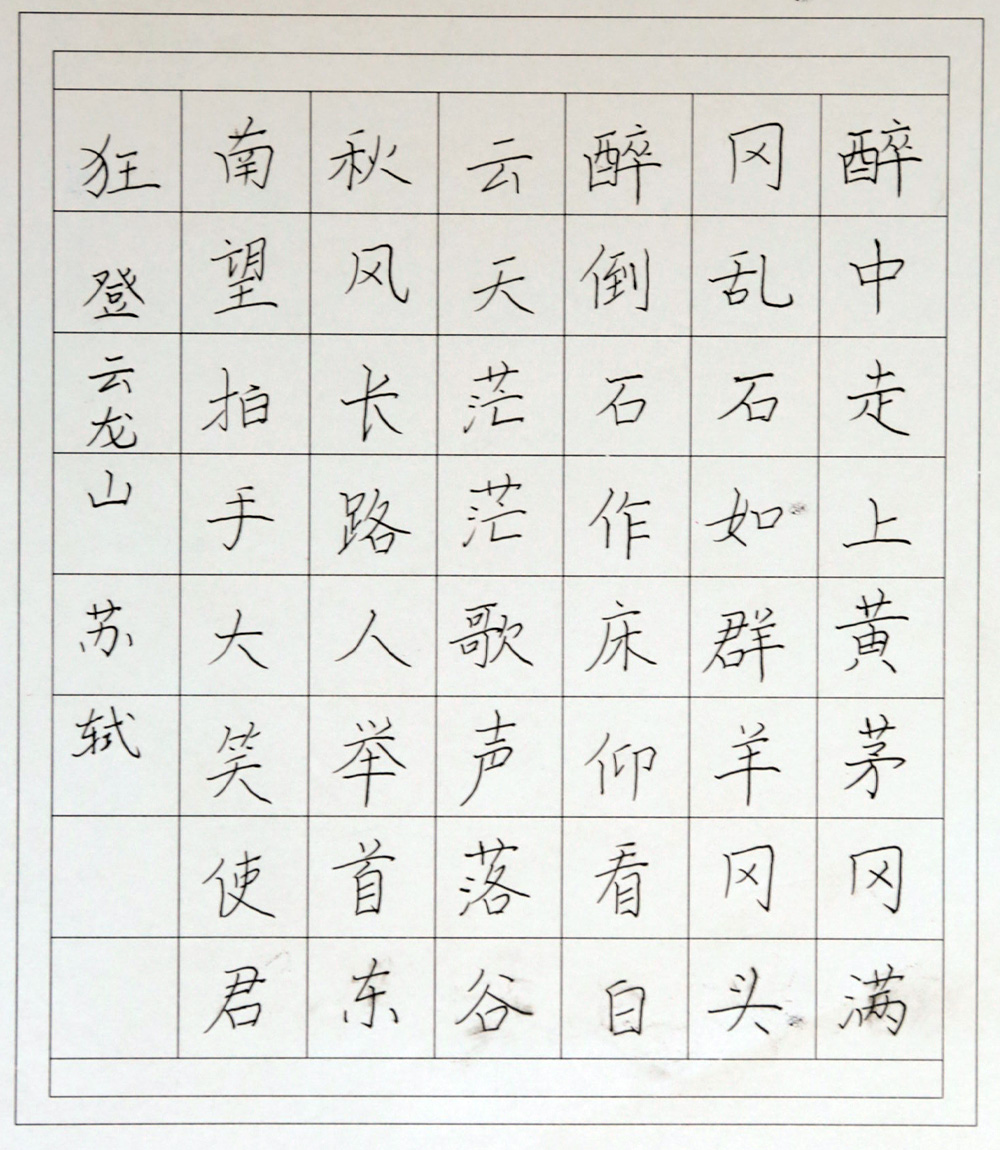 醉中走上黄茅冈满
冈乱石如群羊冈头
醉倒石作床仰看白
云天茫茫歌声落谷
秋风长路人举首东
南望拍手大笑使君
狂登云龙山苏轼